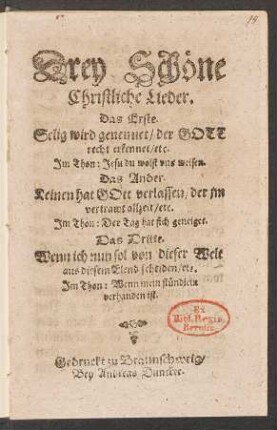 19
Drey Schöne
Christliche Lieder.
Das Erste.
Selig wird genennet/ der GOTT
recht erkennet/etc.
Im Thon: Jesu du wolst vns weisen.
Das Ander.
Keinen hat GOtt verlassen/ der jm
vertrawt allzeit/etc.
Im Thon: Der Tag hat sich geneiget.
Das Dritte.
Wenn ich nun sol von dieser Welt
aus diesem Elend scheiden/etc.
Im Thon: Wenn mein stündlein
verhanden ist.
Ex
Bibl. Regia
Berolin.
Gedruckt zu Braunschweig/
Bey Andreas Duncker.